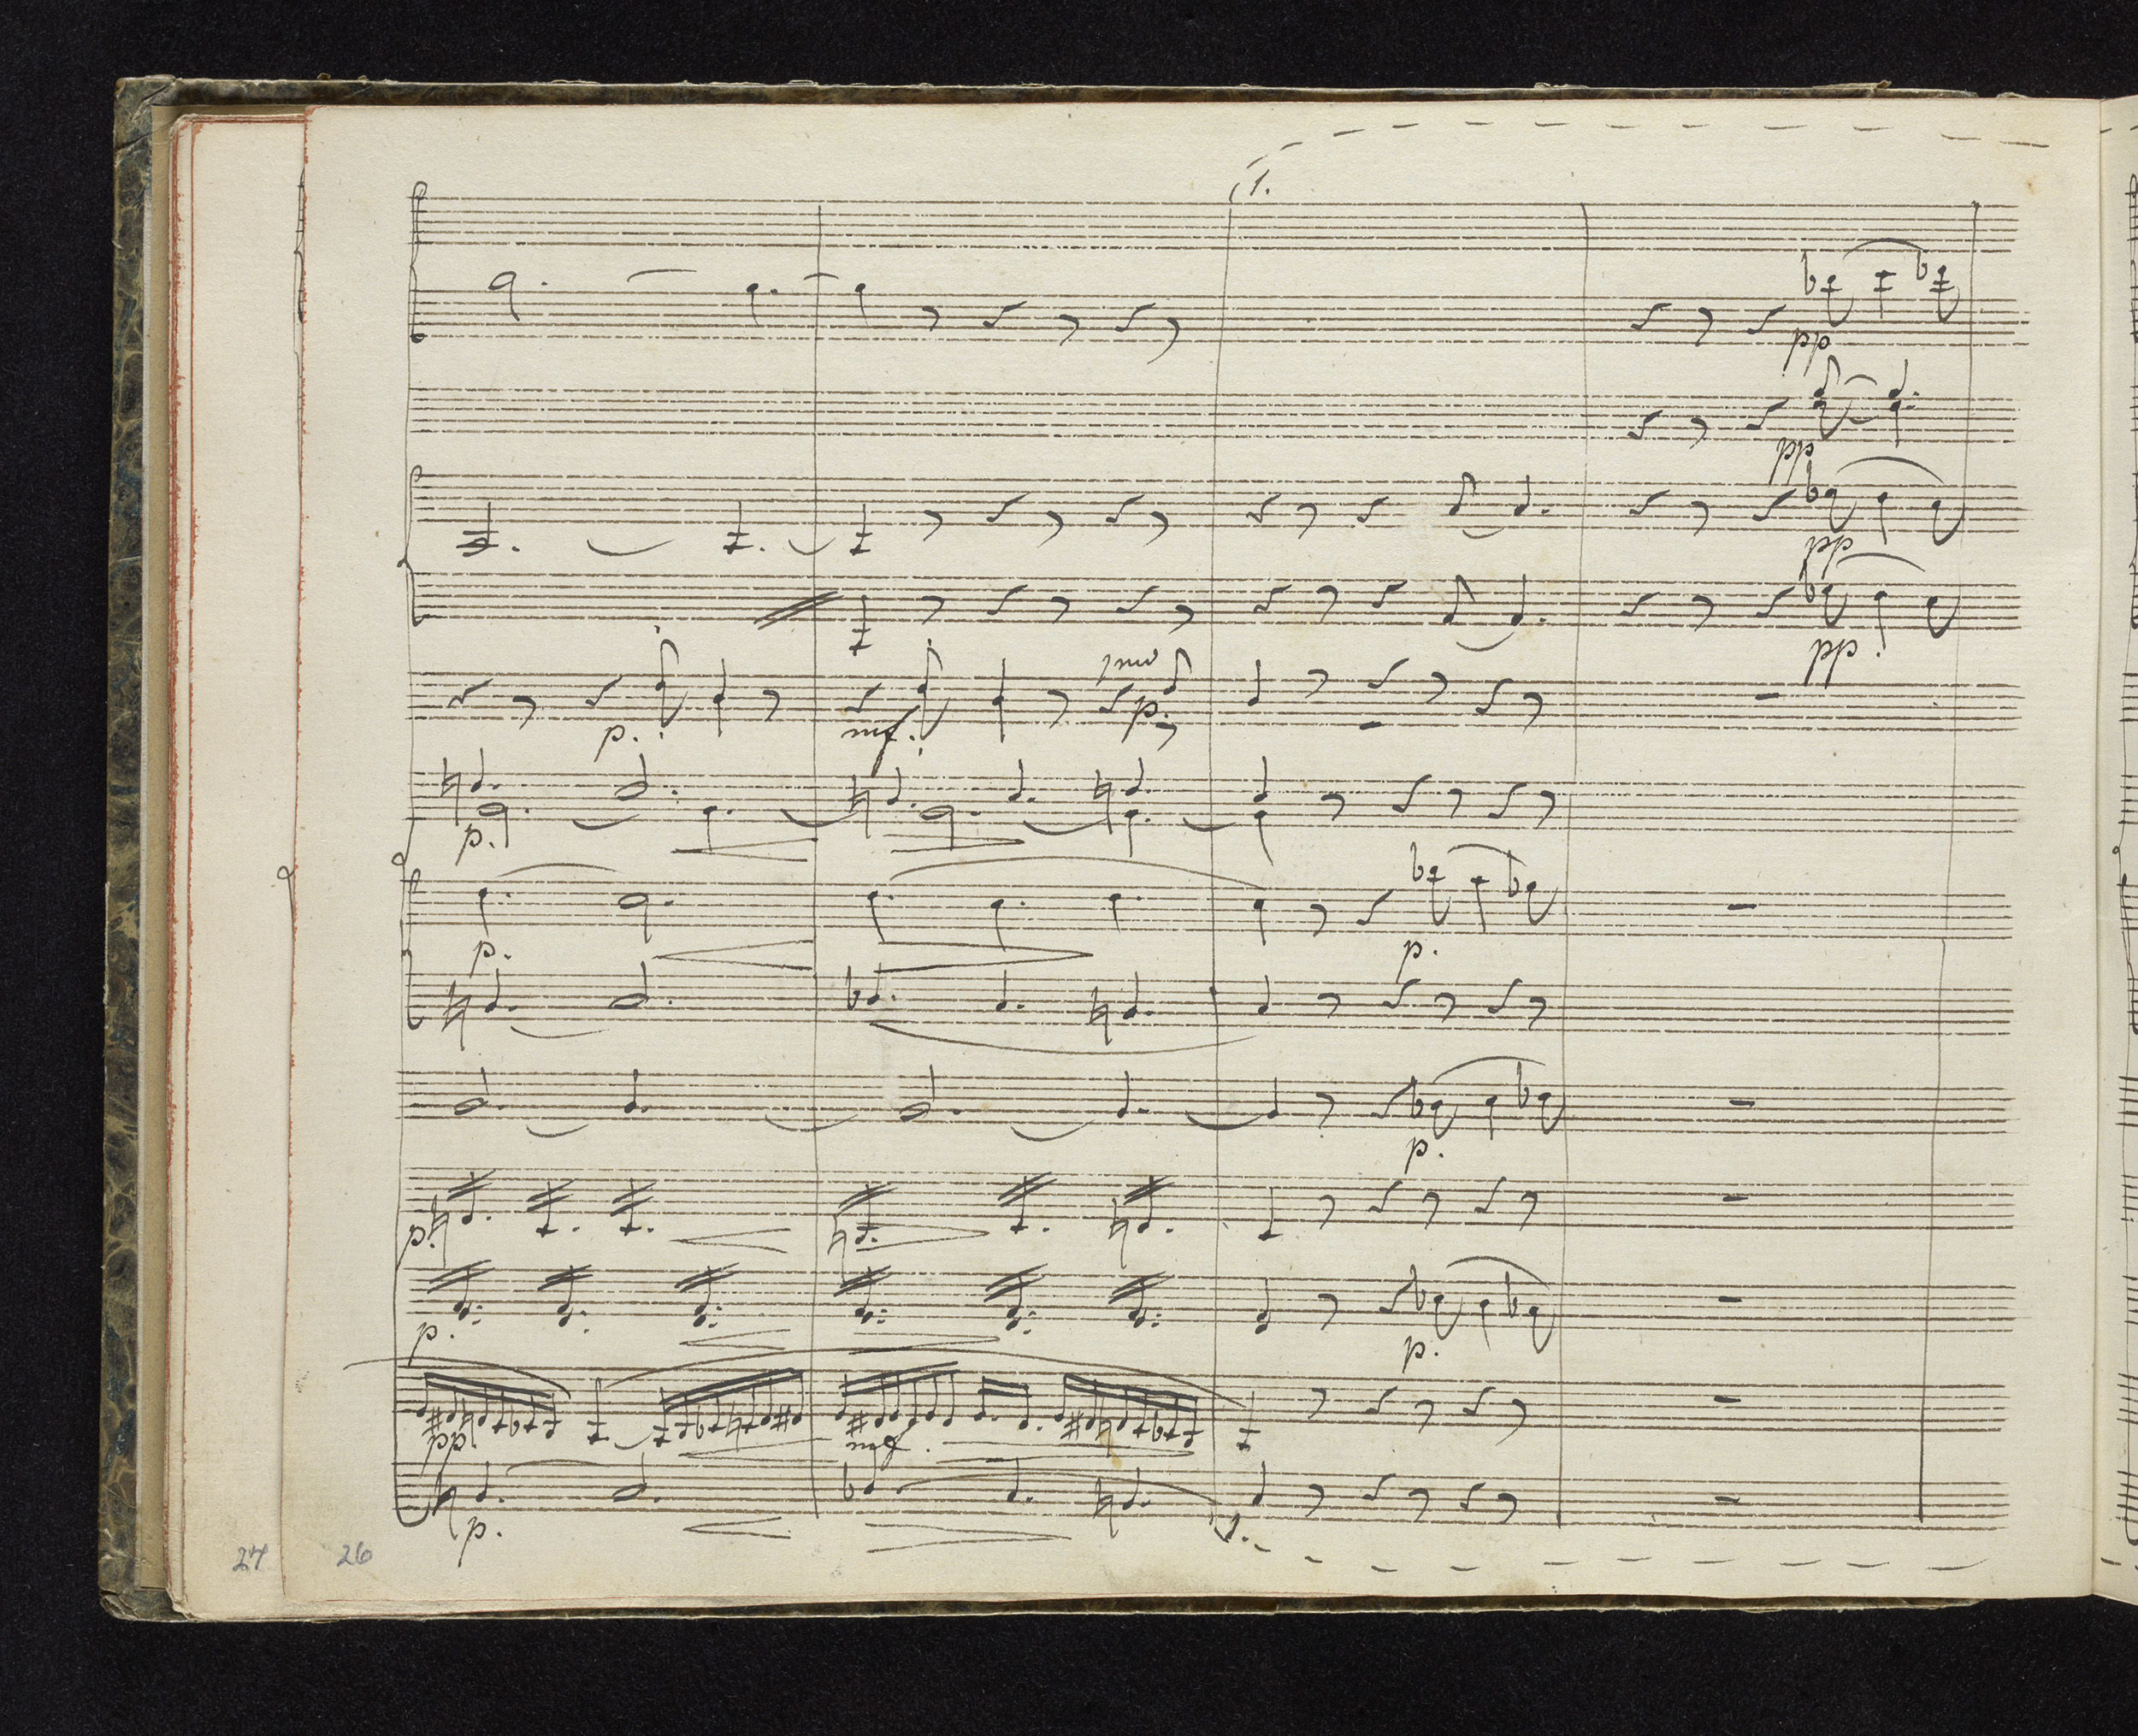 1.
pp
pp
pp
pp.
1mo
p.
mf.
p.
p.
p.
p.
p.
p.
p.
p.
pp.
mf.
p.
1.
27 26